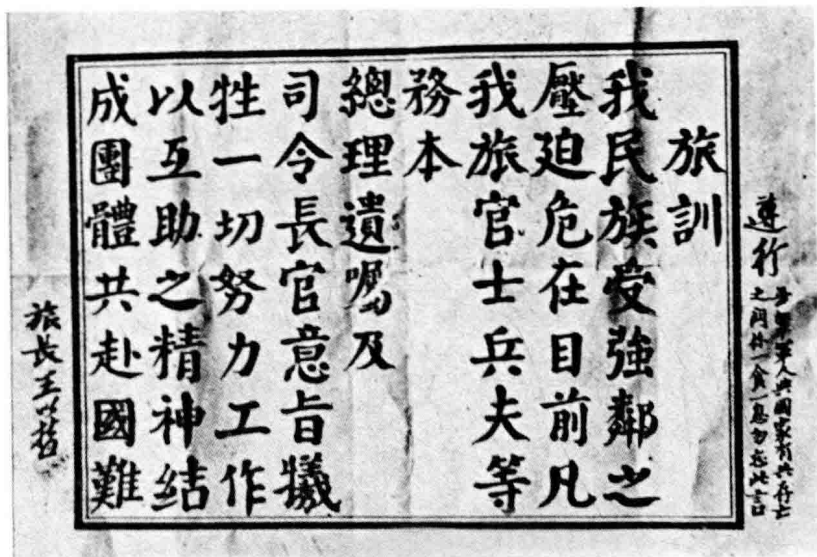 遵行
軍人與國家有共存亡
之關係一食一息勿忘此言
旅訓
我民族受強鄰之
壓迫危在目前凡
我旅官士兵夫等
務本
總理遺囑及
司令長官意旨犧
牲一切努力工作
以互助之精神結
成團體共赴國難
旅長王以哲